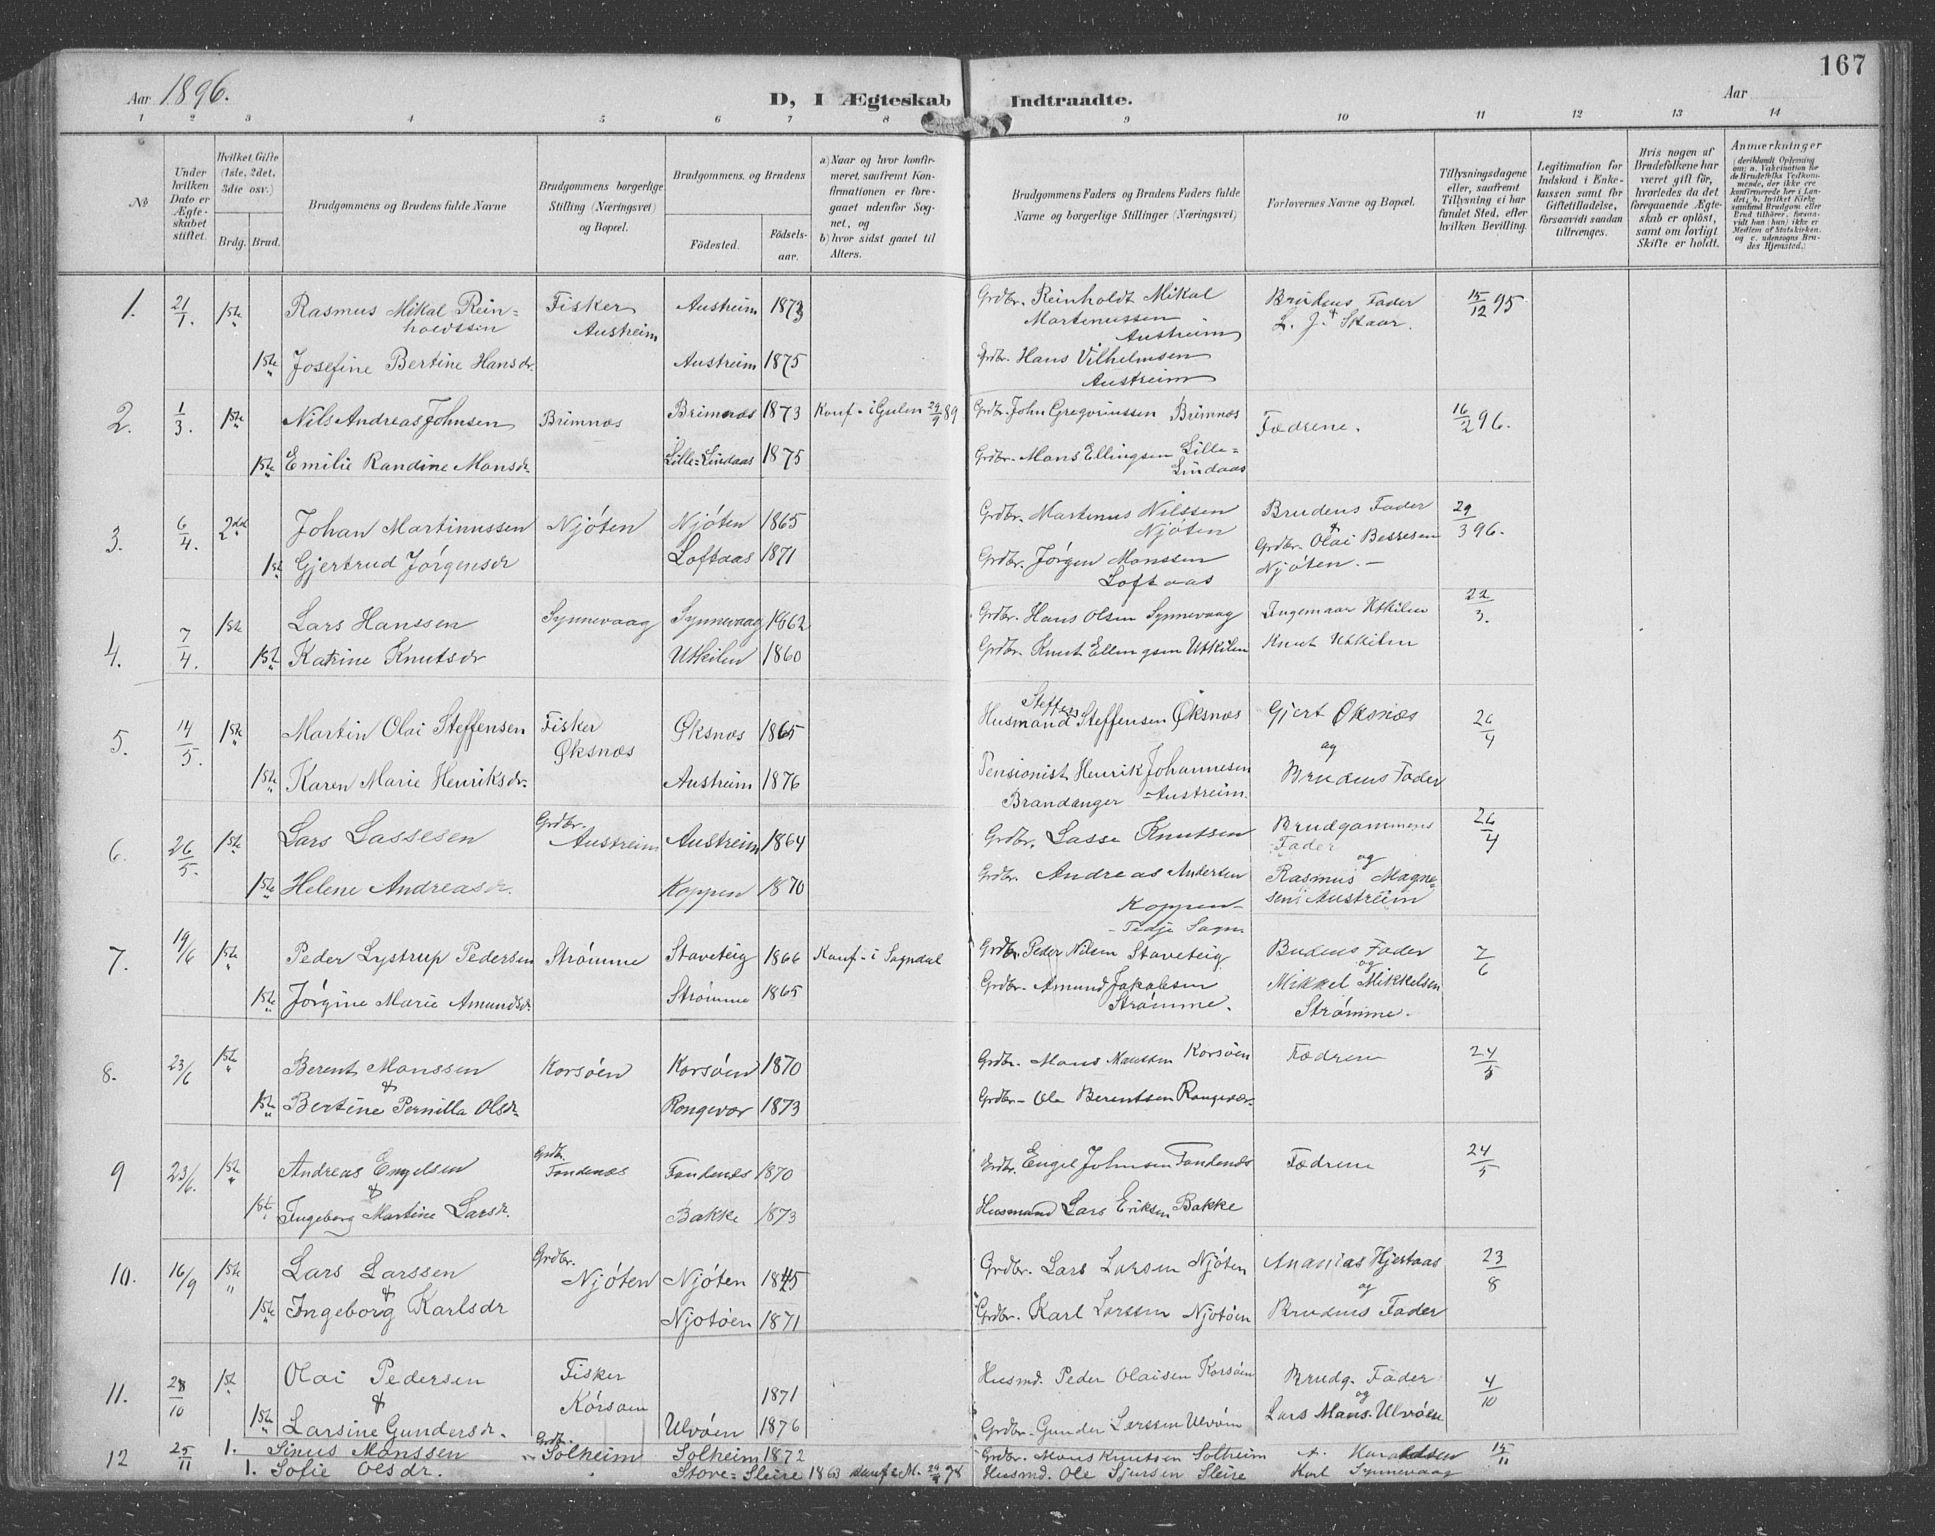 167
Aar 1896.
D, I Ægteskab Indtraadte.
Aar
1 2 3 4 5 6 7 8 9 10 11 12 13 14
No
Under hvilken Dato er Ægteskabet stiftet.
Hvilket Gifte (1ste, 2det, 3die osv.)
Brdg. Brud.
Brudgommens og Brudens fulde Navne
Brudgommens borgerlige Stilling (Næringsvei) og Bopæl.
Brudgommens og Brudens
Födested. Födselsaar.
a) Naar og hvor konfirmeret, saafremt Konfirmationen er foregaaet udenfor Sognet, og
b) hvor sidst gaaet til Alters.
Brudgommens Faders og Brudens Faders fulde Navne og borgerlige Stillinger (Næringsvei)
Forlovernes Navne og Bopæl.
Tillysningsdagene eller, saafremt Tillysning ei har fundet Sted, efter hvilken Bevilling.
Legitimation for Indskud i Enkekassen samt for Giftetilladelse, forsaavidt saadan tiltrænges.
Hvis nogen af Brudefolkene har været gift før, hvorledes da det foregaaende Ægteskab er opløst, samt om lovligt Skifte er holdt.
Anmærkninger
1. 21/1. 1ste Rasmus Mikal Rein= Fisker Austreim 1873 Grdbr. Reinholdt Mikal Brudens Fader 15/12 95
holdtsen Austreim Martinussen & L. J. Skaar.
Austreim
1ste Josefine Bertine Hansdr. Austreim 1875 Grdbr. Hans Vilhelmsen
Austreim
2. 1/3. 1ste Nils Andreas Johnsen Brimnæs Brimnæs 1873 Konf. i Gulen 29/9 89 Grdbr. John Gregoriussen Brimnæs Fædrene. 16/2 96.
1ste Emilie Randine Monsdr. Lille=Lindaas 1875 Grdbr. Mons Ellingsen Lille=
Lindaas
3. 6/4. 2det Johan Martinussen Njöten Njöten 1865 Grdbr. Martinus Nilssen Brudens Fader 29/3 96.
Njöten & Grdbr. Olai Bessesen
1ste Gjertrud Jörgensdr Loftaas 1871 Grdbr. Jörgen Monssen Njöten. —
Loftaas
4. 7/4. 1ste Lars Hanssen Synnevaag Synnevaag 1862 Grdbr. Hans Olsen Synnevaag Ingemaar Utkilen 22/3.
1ste Katrine Knutsdr Utkilen 1860 Grdbr. Knut Ellingsen Utkilen Knut Utkilen
5. 14/5. 1ste Martin Olai Steffensen Fisker Øksnæs 1865 Husmand Steffen Steffensen Øksnæs Gjert Øksnæs 26/4
Øksnæs og
1ste Karen Marie Henriksdr. Austreim 1876 Pensionist Henrik Johannesen Brudens Fader
Brandanger =Austreim.
6. 26/5. 1ste Lars Lassesen Grdbr. Austreim Austreim 1864 Grdbr. Lasse Knutsen Brudgommens 26/4
Fader og
1ste Helene Andreasdr. Koppen 1870 Grdbr. Andreas Andersen Rasmus Magne=
Koppen— sen Austreim
- Tedje Sogn
7. 19/6 1ste Peder Lystrup Pedersen Strömme Staveteig 1866 Konf. i Sogndal Grdbr. Peder Nilsen Staveteig Budens Fader 7/6
og
1ste Jörgine Marie Amundsdr. Strömme 1865 Grdbr. Amund Jakobsen Mikkel Mikkelsen
Strömme. Strömme.
8. 23/6 1ste Berent Monssen Korsöen Korsöen 1870 Grdbr. Mons Monssen Korsöen Fædrene 24/5
&
1ste Bertine Pernilla Olsdr. Rongevær 1873 Grdbr. Ole Berentsen Rongevær.
9 23/6. 1ste Andreas Engelsen Grdbr. Fondenæs Fondenæs 1870 Grdbr. Engel Johnsen Fondenæs Fædrene 24/5
&
1ste Ingeborg Martine Larsdr. Bakke 1873 Husmand Lars Eriksen Bakke
10. 16/9 1ste Lars Larssen Grdbr. Njöten Njöten 1845 Grdbr. Lars Larsen Njöten Ananias Hjertaas 23/8
& og
1ste Ingeborg Karlsdr Njotöen 1871 Grdbr. Karl Larssen Njotöen Brudens Fader
11. 28/10 1ste Olai Pedersen Fisker 1871 Husmd. Peder Olaisen Korsöen Brudg. Fader 4/10
& Korsöen og
1ste Larsine Gundersdr. Ulvöen 1876 Grdbr. Gunder Larssen Ulvöen Lars Mons. Ulvöen
12 25/11 1. Sinus Monssen Grdbr. Solheim Solheim 1872 Grdbr. Mons Knutsen Solheim A. Haraldsen 15/11
1. Sofie Olsdr. Store=Sleire 1863 Husmd. Ole Sjursen Sleire Karl Synnevaag